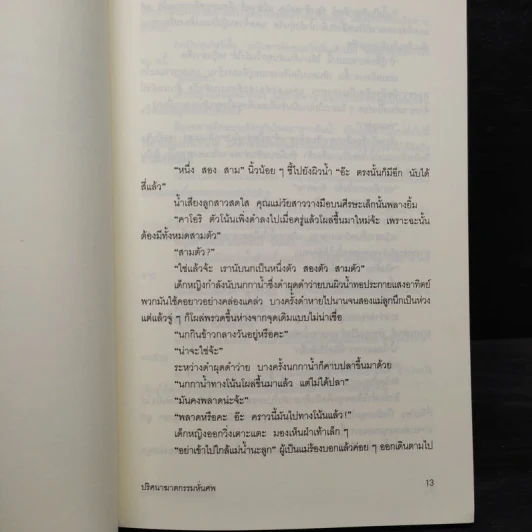 “หนึ่ง สอง สาม” นิ้วน้อย ๆ ชี้ไปยังผิวน้ำ “อ๊ะ ตรงนั้นก็มีอีก นับได้
สี่แล้ว”
น้ำเสียงลูกสาวสดใส คุณแม่วัยสาววางมือบนศีรษะเล็กนั้นพลางยิ้ม
“คาโอริ ตัวโน้นเพิ่งดำลงไปเมื่อครู่แล้วโผล่ขึ้นมาใหม่จ้ะ เพราะฉะนั้น
ต้องมีทั้งหมดสามตัว”
“สามตัว?”
“ใช่แล้วจ้ะ เรานับนกเป็นหนึ่งตัว สองตัว สามตัว”
เด็กหญิงกำลังนับนกกาน้ำซึ่งดำผุดดำว่ายบนผิวน้ำทอประกายแสงอาทิตย์
พวกมันใช้คอยาวอย่างคล่องแคล่ว บางครั้งดำหายไปนานจนสองแม่ลูกนึกเป็นห่วง
แต่แล้วจู่ ๆ ก็โผล่พรวดขึ้นห่างจากจุดเดิมแบบไม่น่าเชื่อ
“นกกินข้าวกลางวันอยู่หรือคะ”
“น่าจะใช่จ้ะ”
ระหว่างดำผุดดำว่าย บางครั้งนกกาน้ำก็คาบปลาขึ้นมาด้วย
“นกกาน้ำทางโน้นโผล่ขึ้นมาแล้ว แต่ไม่ได้ปลา”
“มันคงพลาดน่ะจ้ะ”
“พลาดหรือคะ อ๊ะ คราวนี้มันไปทางโน้นแล้ว!”
เด็กหญิงออกวิ่งเตาะแตะ มองเห็นฝ่าเท้าเล็ก ๆ
“อย่าเข้าไปใกล้แม่น้ำนะลูก” ผู้เป็นแม่ร้องบอกแล้วค่อย ๆ ออกเดินตามไป
ปริศนาฆาตกรรมหั่นศพ 13